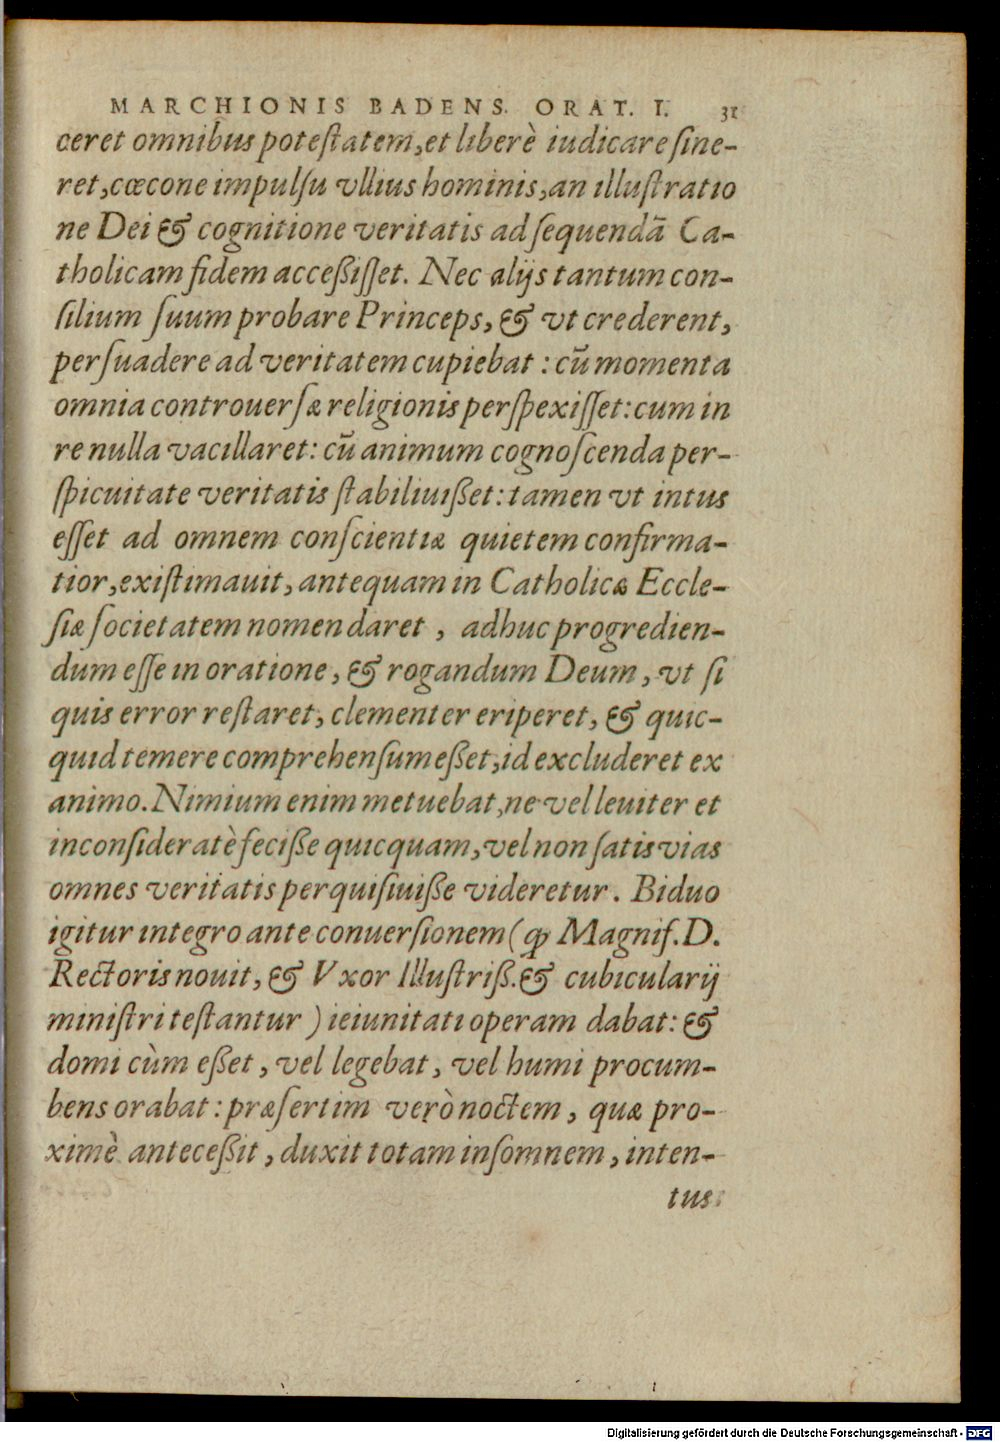 MARCHIONIS BADENS. ORAT. I. 31
ceret omnibus poteſtatem, et liberè iudicare ſine-
ret, cœcone impulſu vllius hominis, an illuſtratio
ne Dei & cognitione veritatis ad ſequendā Ca-
tholicam fidem acceßiſſet. Nec alijs tantum con-
ſilium ſuum probare Princeps, & vt crederent,
perſuadere ad veritatem cupiebat : cū momenta
omnia controuerſæ religionis perſpexiſſet: cum in
re nulla vacillaret: cū animum cognoſcenda per-
ſpicuitate veritatis ſtabiliuißet: tamen vt intus
eſſet ad omnem conſcientiæ quietem confirma-
tior, exiſtimauit, antequam in Catholicæ Eccle-
ſiæ ſocietatem nomen daret, adhuc progredien-
dum eſſe in oratione, & rogandum Deum, vt ſi
quis error reſtaret, clementer eriperet, & quic-
quid temere comprehenſum eßet, id excluderet ex
animo. Nimium enim metuebat, ne vel leuiter et
inconſideratè feciße quicquam, vel non ſatis vias
omnes veritatis perquiſiuiße videretur. Biduo
igitur integro ante conuerſionem (ꝙ Magnif. D.
Rectoris nouit, & Vxor Illuſtriß. & cubicularij
miniſtri teſtantur ) ieiunitati operam dabat: &
domi cùm eßet, vel legebat, vel humi procum-
bens orabat : præſertim verò noctem, quæ pro-
ximè anteceßit, duxit totam inſomnem, inten-
tus
Digitalisierung gefördert durch die Deutsche Forschungsgemeinschaft - DFG